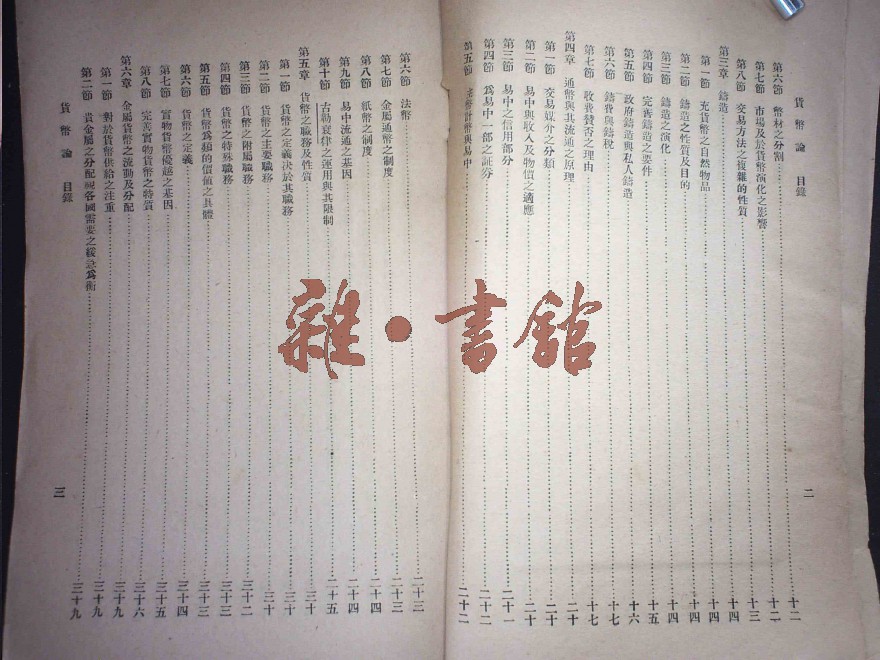 貨幣論 目錄 二
第六節 幣材之分割 十二
第七節 市場及於貨幣演化之影響 十二
第八節 交易方法之複雜的性質 十三
第三章 鑄造 十四
第一節 充貨幣之自然物品 十四
第二節 鑄造之性質及目的 十四
第三節 鑄造之演化 十四
第四節 完善鑄造之要件 十五
第五節 政府鑄造與私人鑄造 十六
第六節 鑄費與鑄稅 十七
第七節 收費贊否之理由 十七
第四章 通幣與其流通之原理 二十
第一節 交易媒介之分類 二十
第二節 易中與收入及物價之適應 二十
第三節 易中之信用部分 二十一
第四節 爲易中一部之証券 二十二
第五節 幣計幣與易中 二十二
第六節 法幣 二十三
第七節 金屬通幣之制度 二十三
第八節 紙幣之制度 二十四
第九節 易中流通之基因 二十四
第十節 古勒裒律之運用與其限制 二十五
第五章 貨幣之職務及性質 三十
第一節 貨幣之定義決於其職務 三十
第二節 貨幣之主要職務 三十
第三節 貨幣之附屬職務 三十二
第四節 貨幣之特殊職務 三十三
第五節 貨幣爲類的價值之具體 三十三
第六節 貨幣之定義 三十四
第七節 實物貨幣優越之基因 三十五
第八節 完善實物貨幣之特質 三十六
第六章 金屬貨幣之流動及分配 三十九
第一節 對於貨幣供給之注重 三十九
第二節 貴金屬之分配視各國需要之緩急爲衡 三十九
貨幣論 目錄 三
雜·書館